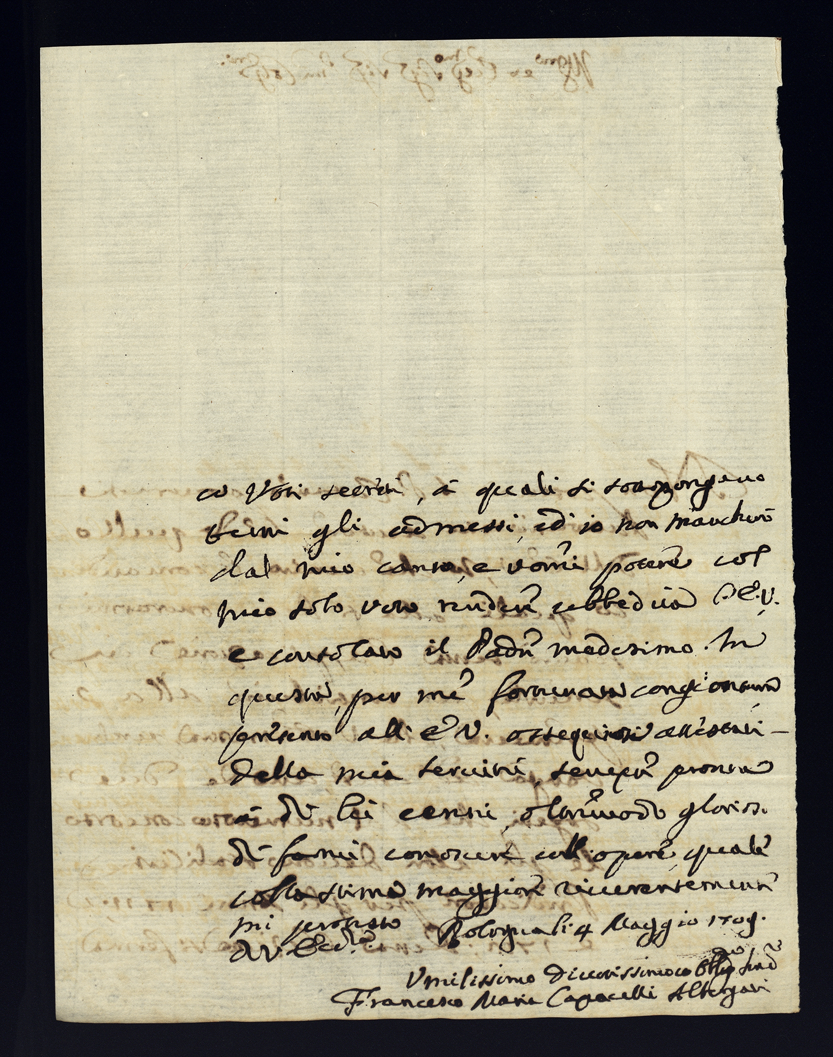 co Voti secreti, à quali si sottopongano
beni gli admessi, ed io non mancherò
dal mio canto, e vorrei potere col
mio solo voto rendere ubbedita l'E.V.
e consolato il Padre medesimo. In
questa, per me fortunata congiontura
presento all' E.V. ossequiosi attestati
della mia servitù, sempre pronta
à di lei cenni, glorioso
di farmi conoscere coll'opere, quale
colla stima maggiore riverentemente
mi protesto Bologna li 4 Maggio 1709.
D. V. Ecc.
Umilissimo Divotissimo Obbl.mo
Francesco Maria Capacelli Albergati